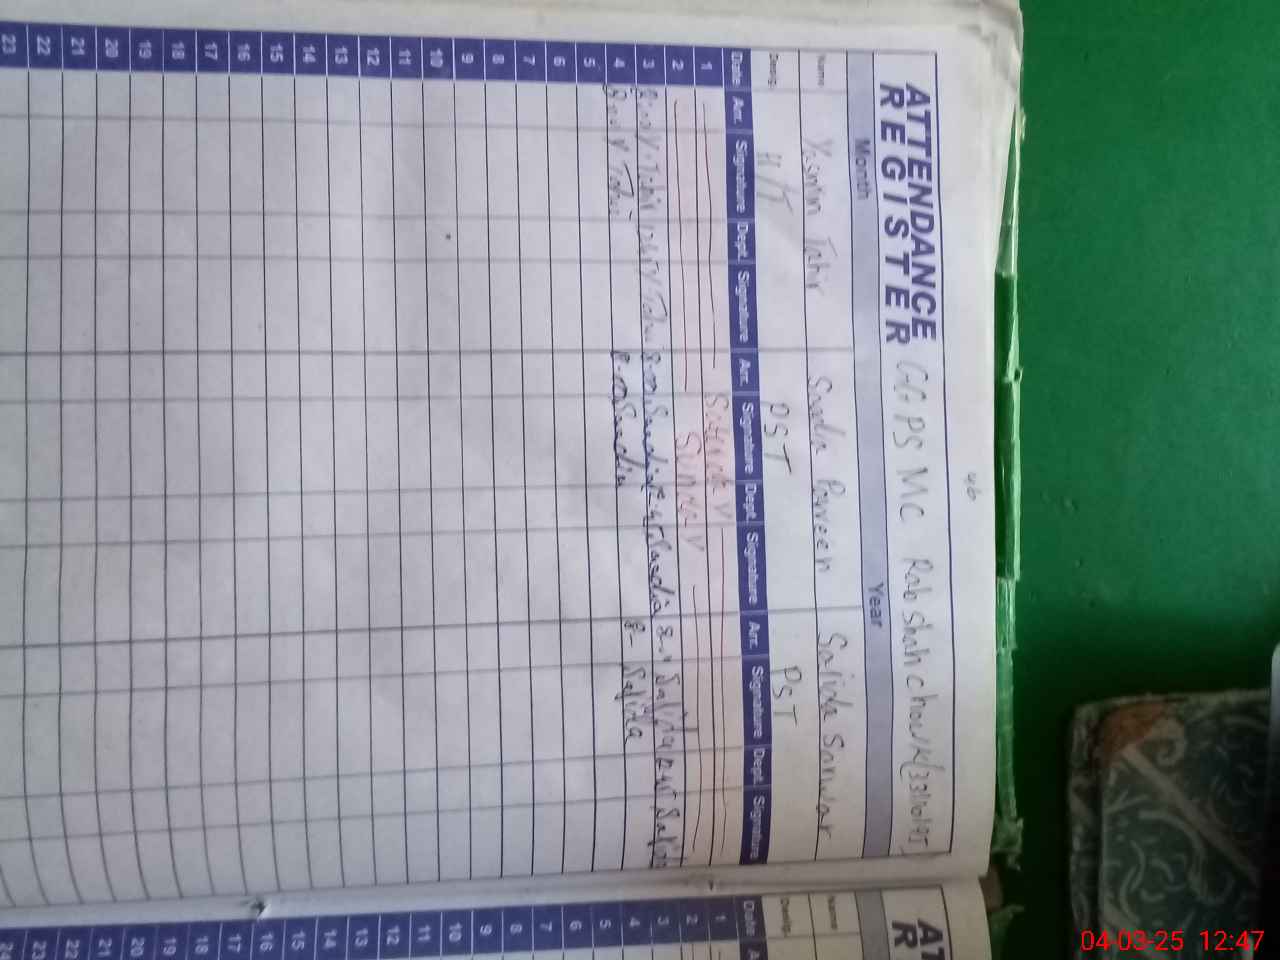 46
ATTENDANCE REGISTER GGPS MC Rab Shah chowk (33110195)
Month Year
Name Yasmin Tahir Saadia Parveen Sajida Sarwar
Desig. H/T PST PST
Date Arr. Signature Dept. Signature Arr. Signature Dept. Signature Arr. Signature Dept. Signature
1 Saturday
2 Sunday
3 Tahir 12:45 Tahir 8:00 Saadia 12:45 Saadia Sajida 12:45 Sajida
4 Tahir 8:00 Saadia Sajida
5
6
7
8
9
10
11
12
13
14
15
16
17
18
19
20
21
22
23
AT
R
Name
Desig.
Date A
1
2
3
4
5
6
7
8
9
10
11
12
13
14
15
16
17
18
19
20
21
22
23
24
04-03-25 12:47